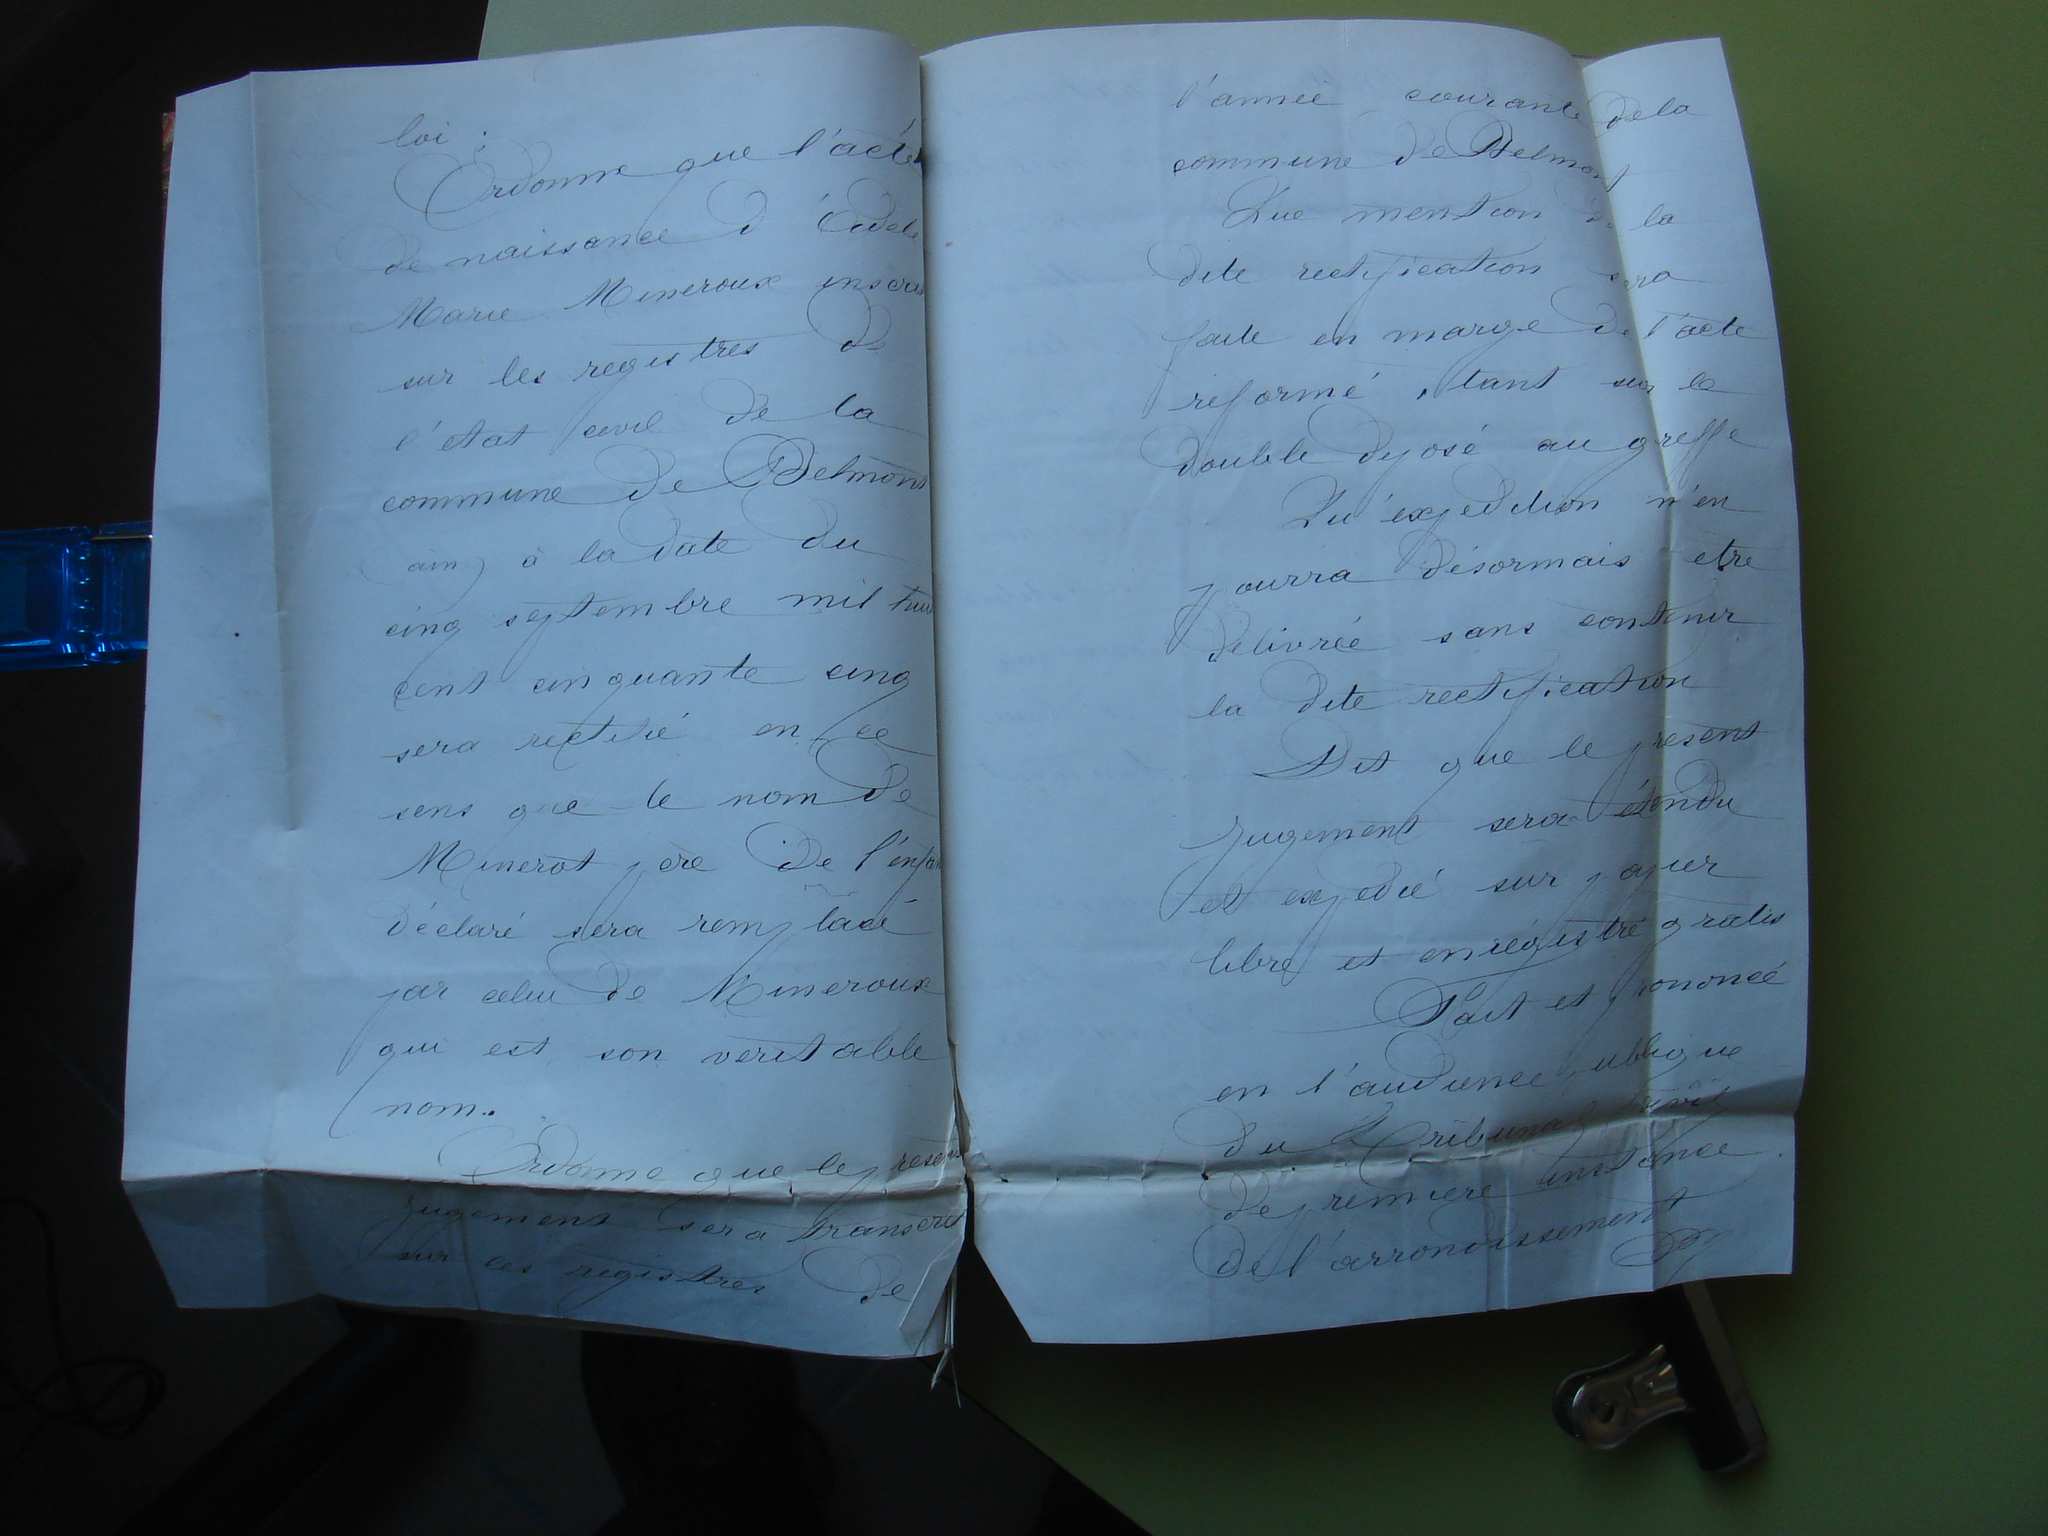 loi ;
Ordonne que l'acte
de naissance d'
Marie Mineroux inscrit
sur les registres de
l'état civil de la
commune de Belmont
ain, à la date du
cinq septembre mil huit
cent cinquante cinq
sera rectifié en ce
sens que le nom de
Minerot père de l'enfant
déclaré sera remplacé
par celui de Mineroux
qui est son veritable
nom.
Ordonne que le présent
jugement sera transcrit
sur les registres de
l'année courante de la
commune de Belmont
Que mention de la
dite rectification sera
faite en marge de l'acte
réformé, tant sur le
double déposé au greffe
Qu'expédition n'en
pourra désormais etre
délivrée sans contenir
la dite rectification
Dit que le présent
jugement sera étendu
et expédié sur papier
libre et enrégistré gratis
Fait et prononcé
en l'audience publique
du Tribunal civil
de première instance
de l'arrondissement